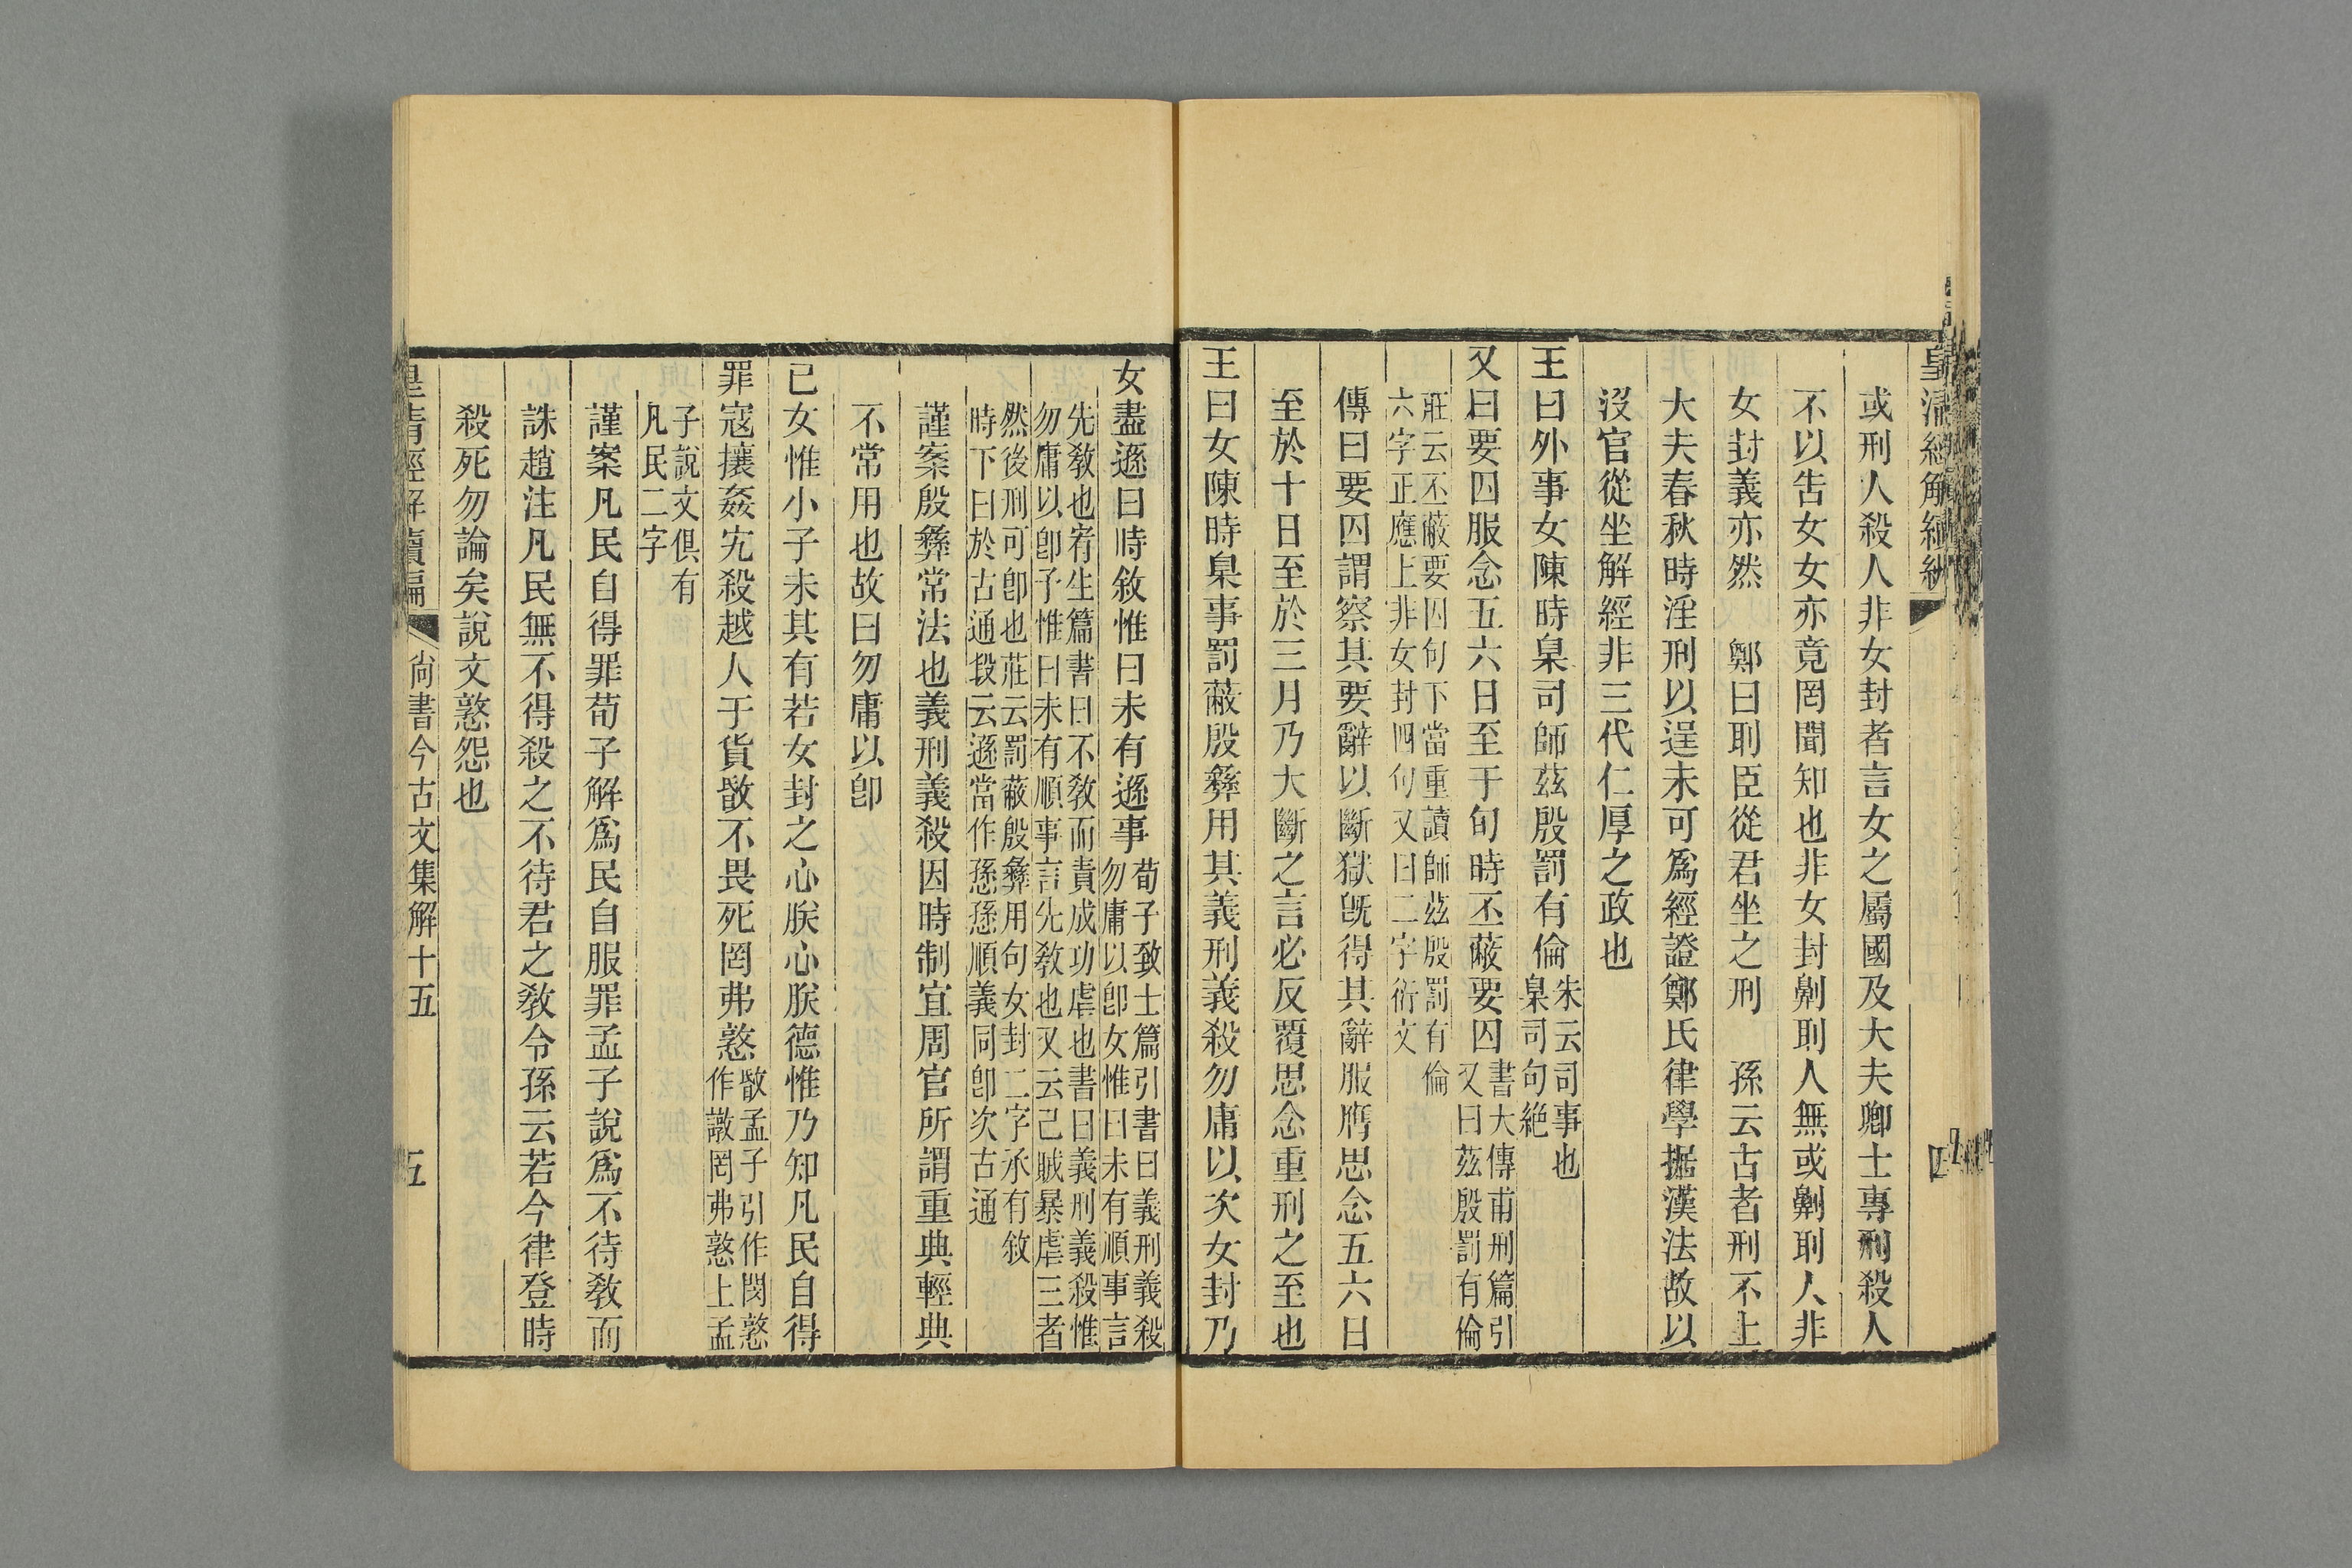 皇清經解續編
四
或刑人殺人非女封者言女之屬國及大夫卿士專刑殺人
不以告女女亦竟罔聞知也非女封劓刵人無或劓刵人非
女封義亦然　鄭曰刵臣從君坐之刑　孫云古者刑不上
大夫春秋時淫刑以逞未可爲經證鄭氏律學据漢法故以
沒官從坐解經非三代仁厚之政也
王曰外事女陳時臬司師茲殷罰有倫
朱云司事也
臬司句絶
又曰要囚服念五六日至于旬時丕蔽要囚
書大傳甫刑篇引
又曰茲殷罰有倫
莊云丕蔽要囚句下當重讀師茲殷罰有倫
六字正應上非女封四句又曰二字衍文
傳曰要囚謂察其要辭以斷獄旣得其辭服膺思念五六日
至於十日至於三月乃大斷之言必反覆思念重刑之至也
王曰女陳時臬事罰蔽殷彝用其義刑義殺勿庸以次女封乃
女盡遜曰時敘惟曰未有遜事
荀子致士篇引書曰義刑義殺
勿庸以卽女惟曰未有順事言
先敎也宥生篇書曰不敎而責成功虐也書曰義刑義殺惟
勿庸以卽予惟曰未有順事言先敎也又云己賊暴虐三者
然後刑可卽也莊云罰蔽殷彝用句女封二字承有敘
時下曰於古通段云遜當作愻愻順義同卽次古通
謹案殷彝常法也義刑義殺因時制宜周官所謂重典輕典
不常用也故曰勿庸以卽
已女惟小子未其有若女封之心朕心朕德惟乃知凡民自得
罪寇攘姦宄殺越人于貨暋不畏死罔弗憝
暋孟子引作閔憝
作譈罔弗憝上孟
子說文俱有
凡民二字
謹案凡民自得罪荀子解爲民自服罪孟子說爲不待敎而
誅趙注凡民無不得殺之不待君之敎令孫云若今律登時
殺死勿論矣說文憝怨也
皇清經解續編
尙書今古文集解十五
五